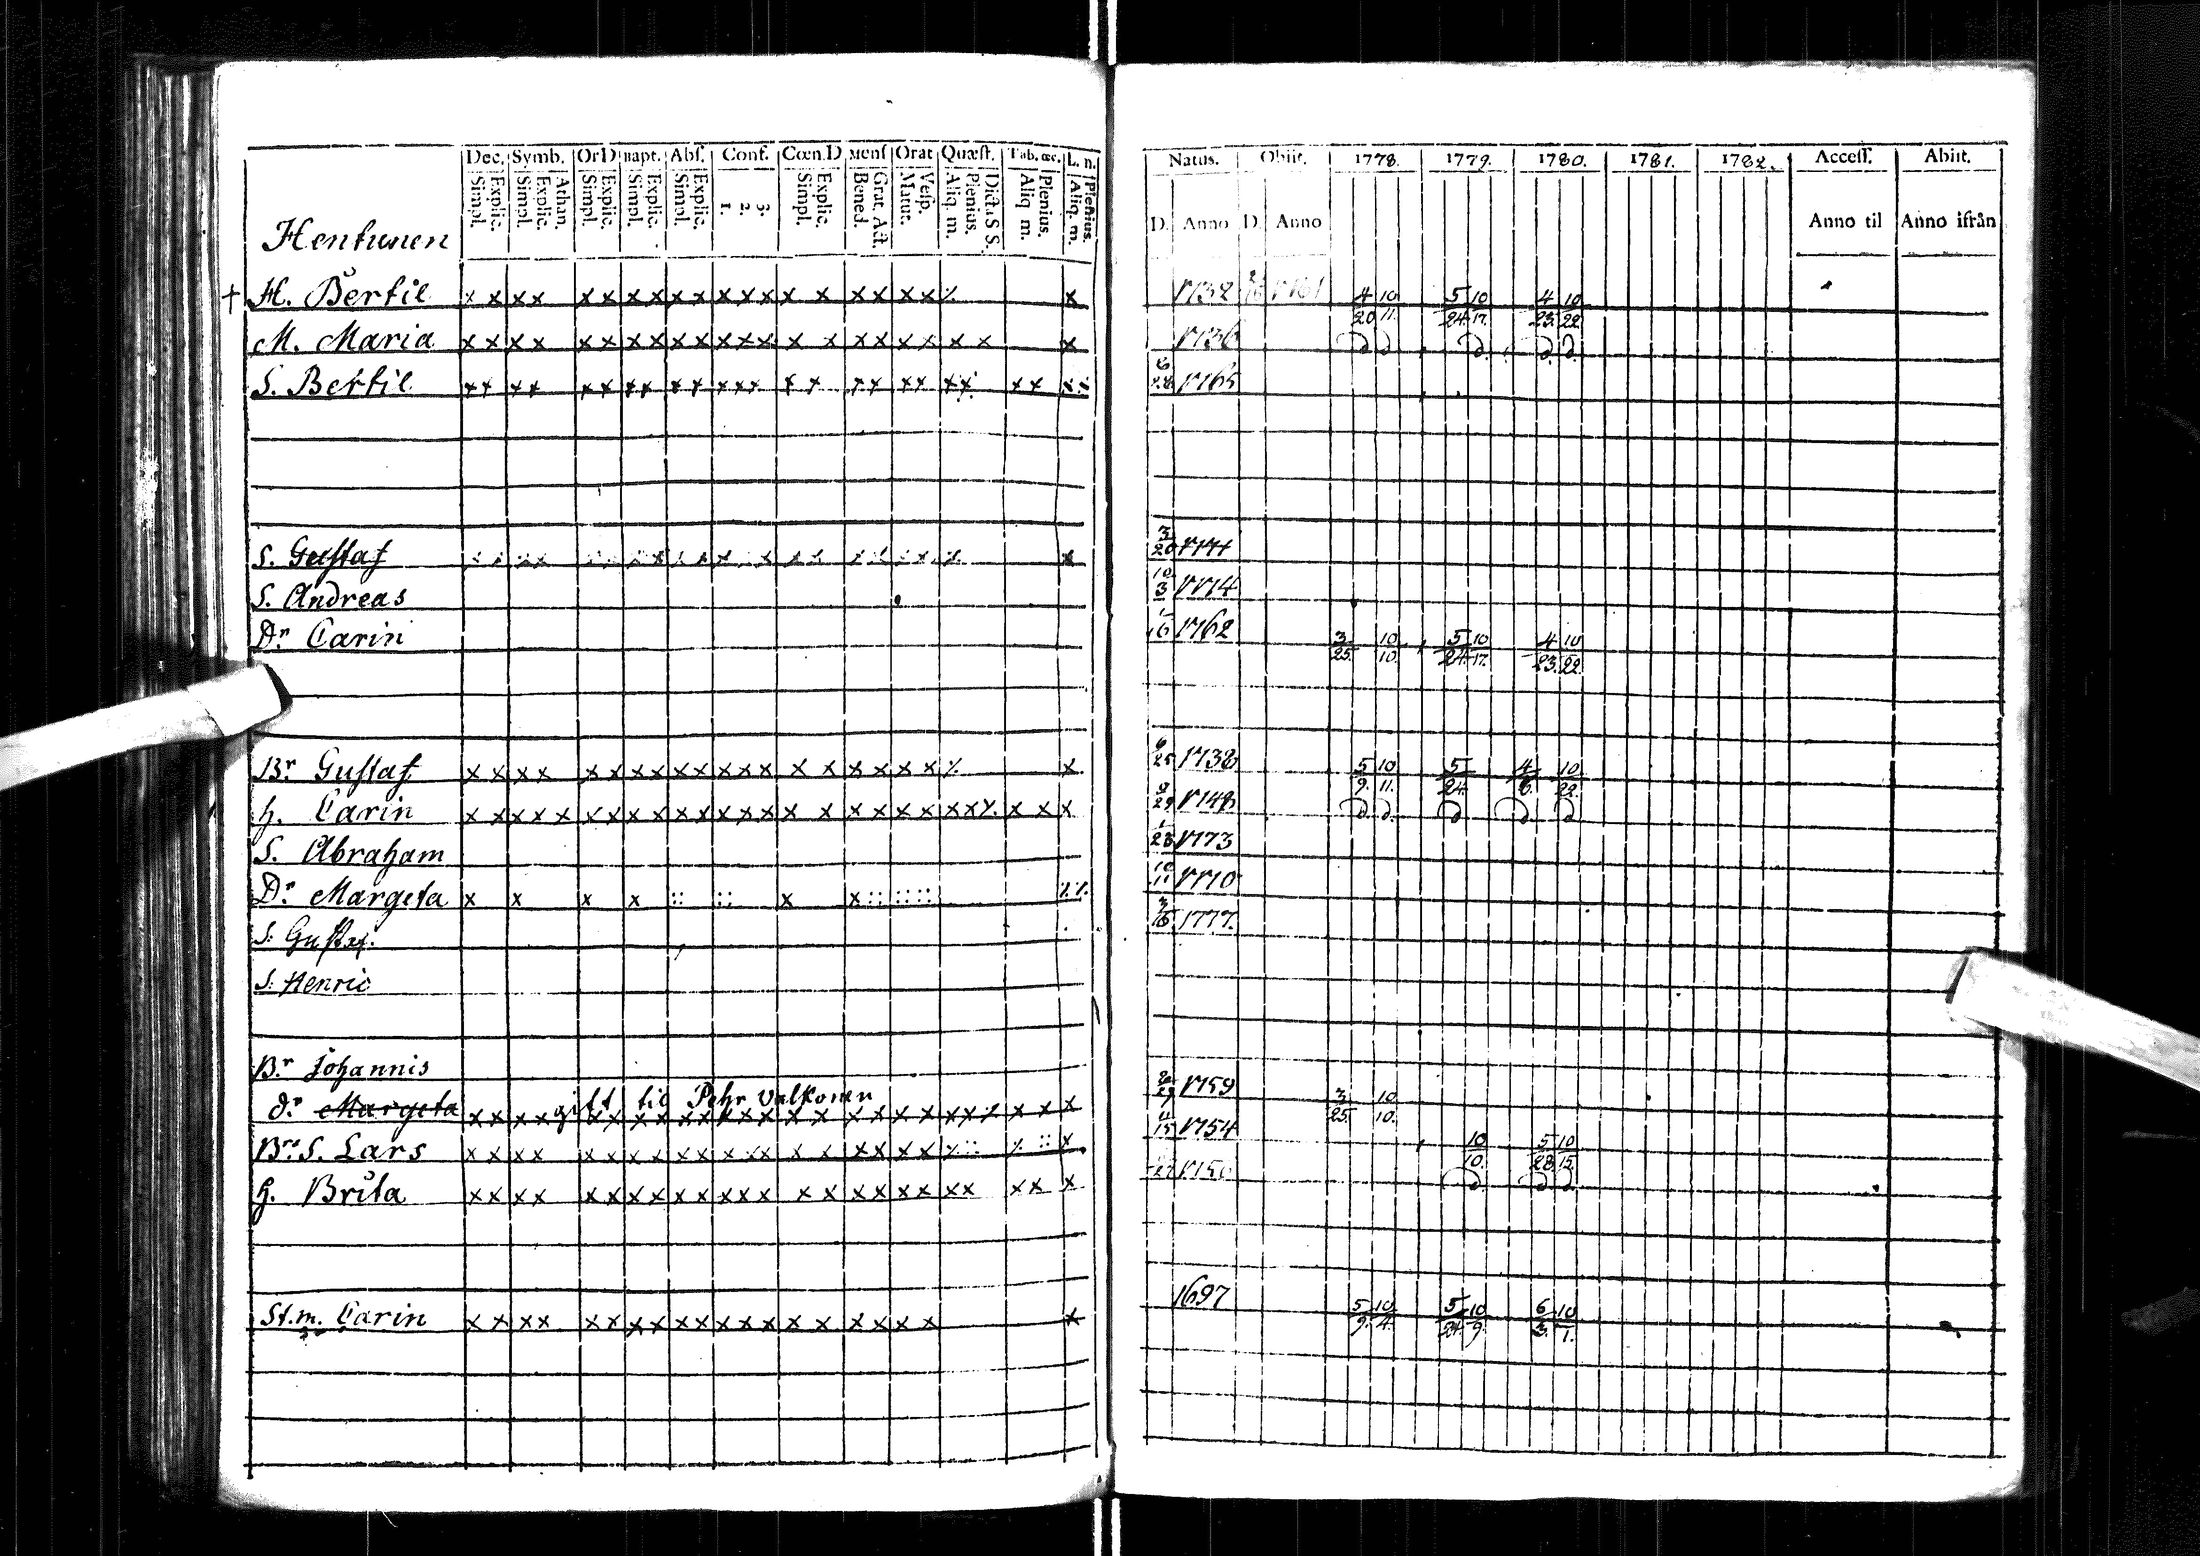 Dec. Symb. Or D Bapt. Abs. Conf. Cœn. D Mens Orat Quæst. Tab. œc. L. n.
Simpl. Explic. Simpl. Explic. Athan. Simpl. Explic. Simpl. Explic. Simpl. Explic. 1. 2. 3. Simpl. Explic. Bened. Grat. Act. Matut. Vesp. Aliq. m. Plenius. Dicta S S. Aliq m. Plenius. Aliq. m. Plenius.
Hentunen
† H. Bertil x x x x x x x x x x x x x x x x x x x ٪ x
M. Maria x x x x x x x x x x x x x x x x x x x x x x
S. Bertil x x x x x x x x x x x x x x x x x x x x x x x x
S. Gustaf
S. Andreas
Dr Carin
Br Gustaf x x x x x x x x x x x x x x x x x x x x
h. Carin x x x x x x x x x x x x x x x x x x x x x x x x x
S. Abraham
Dr Margeta x x x x :: :: x x :: :: ::
S. Gustaf.
S. Henric
Br Johannis
dr Margeta gift til Pehr Valkonen
Brs S. Lars
h. Brita x x x x x x x x x x x x x x x x x x x x x x x x
St. m. Carin x x x x x x x x x x x x x x x x x x x x
Natus. Obiit. 1778. 1779. 1780. 1781. 1782. Access. Abiit.
D. Anno D. Anno Anno til Anno ifrån
1732 4/20 10/11. 5/24. 10/17. 4/23. 10/22.
1736
1765
3/20
10/3 1774
1762 3/25. 10/10. 5/24. 10/17. 4/23. 10/22.
6/25 1738 5/9. 10/11. 5/24. 4/6. 10/22.
1/23 1773
10/11 1770
3/16 1777.
1759 3/25. 10/10.
1754 10/10. 5/28. 10/15.
1697 5/9. 10/4. 5/24. 10/9. 6/3. 10/1.